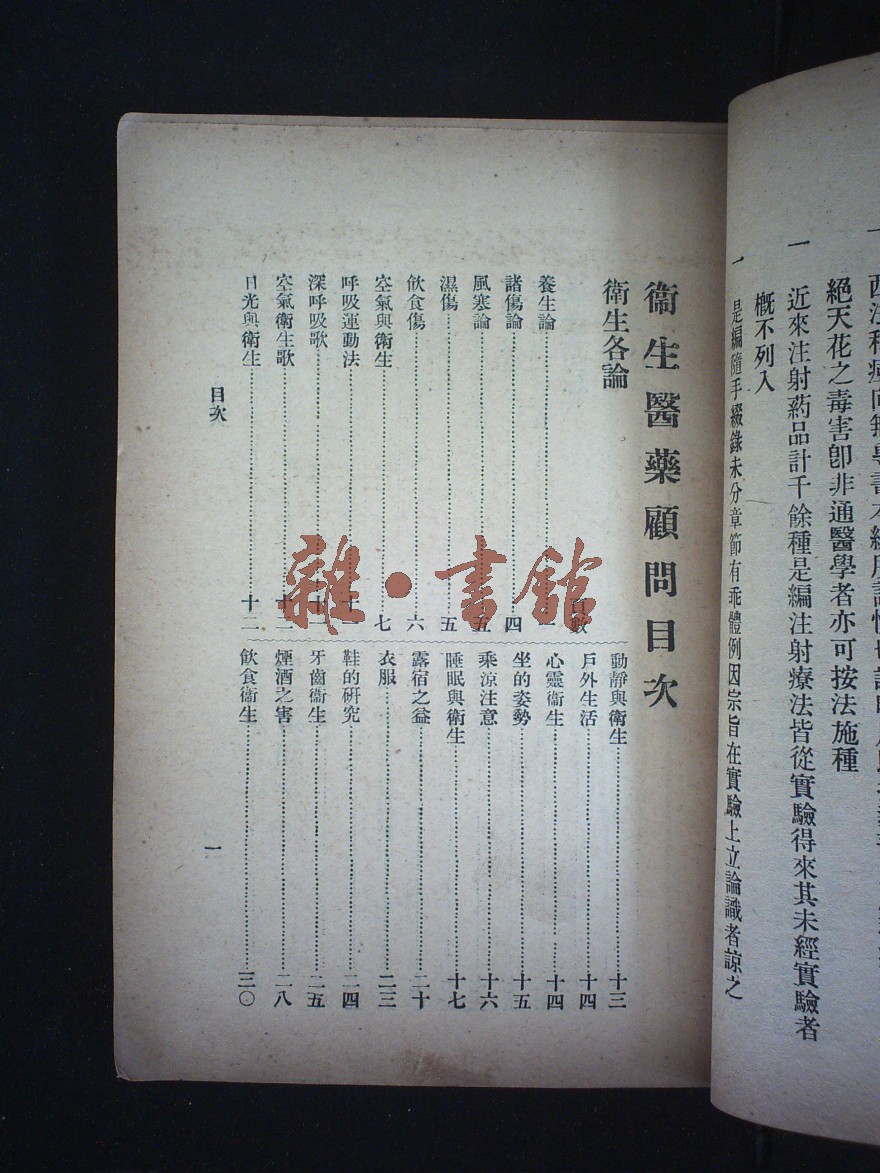 一 西法種痘向無專書
絕天花之毒害卽非通醫學者亦可按法施種
一 近來注射药品計千餘種是編注射療法皆從實驗得來其未經實驗者
概不列入
一 是編隨手綴錄未分章節有乖體例因宗旨在實驗上立論識者諒之
衞生醫藥顧問目次
衛生各論
頁數
養生論 一
諸傷論 四
風寒論 五
濕傷 五
飲食傷 六
空氣與衛生 七
呼吸運動法 十一
深呼吸歌 十一
空氣衛生歌 十二
日光與衛生 十二
動靜與衛生 十三
戶外生活 十四
心靈衞生 十四
坐的姿勢 十五
乘涼注意 十六
睡眠與衛生 十七
露宿之益 二十
衣服 二三
鞋的研究 二四
牙齒衞生 二五
煙酒之害 二八
飲食衞生 三〇
目次
一
雜·書館